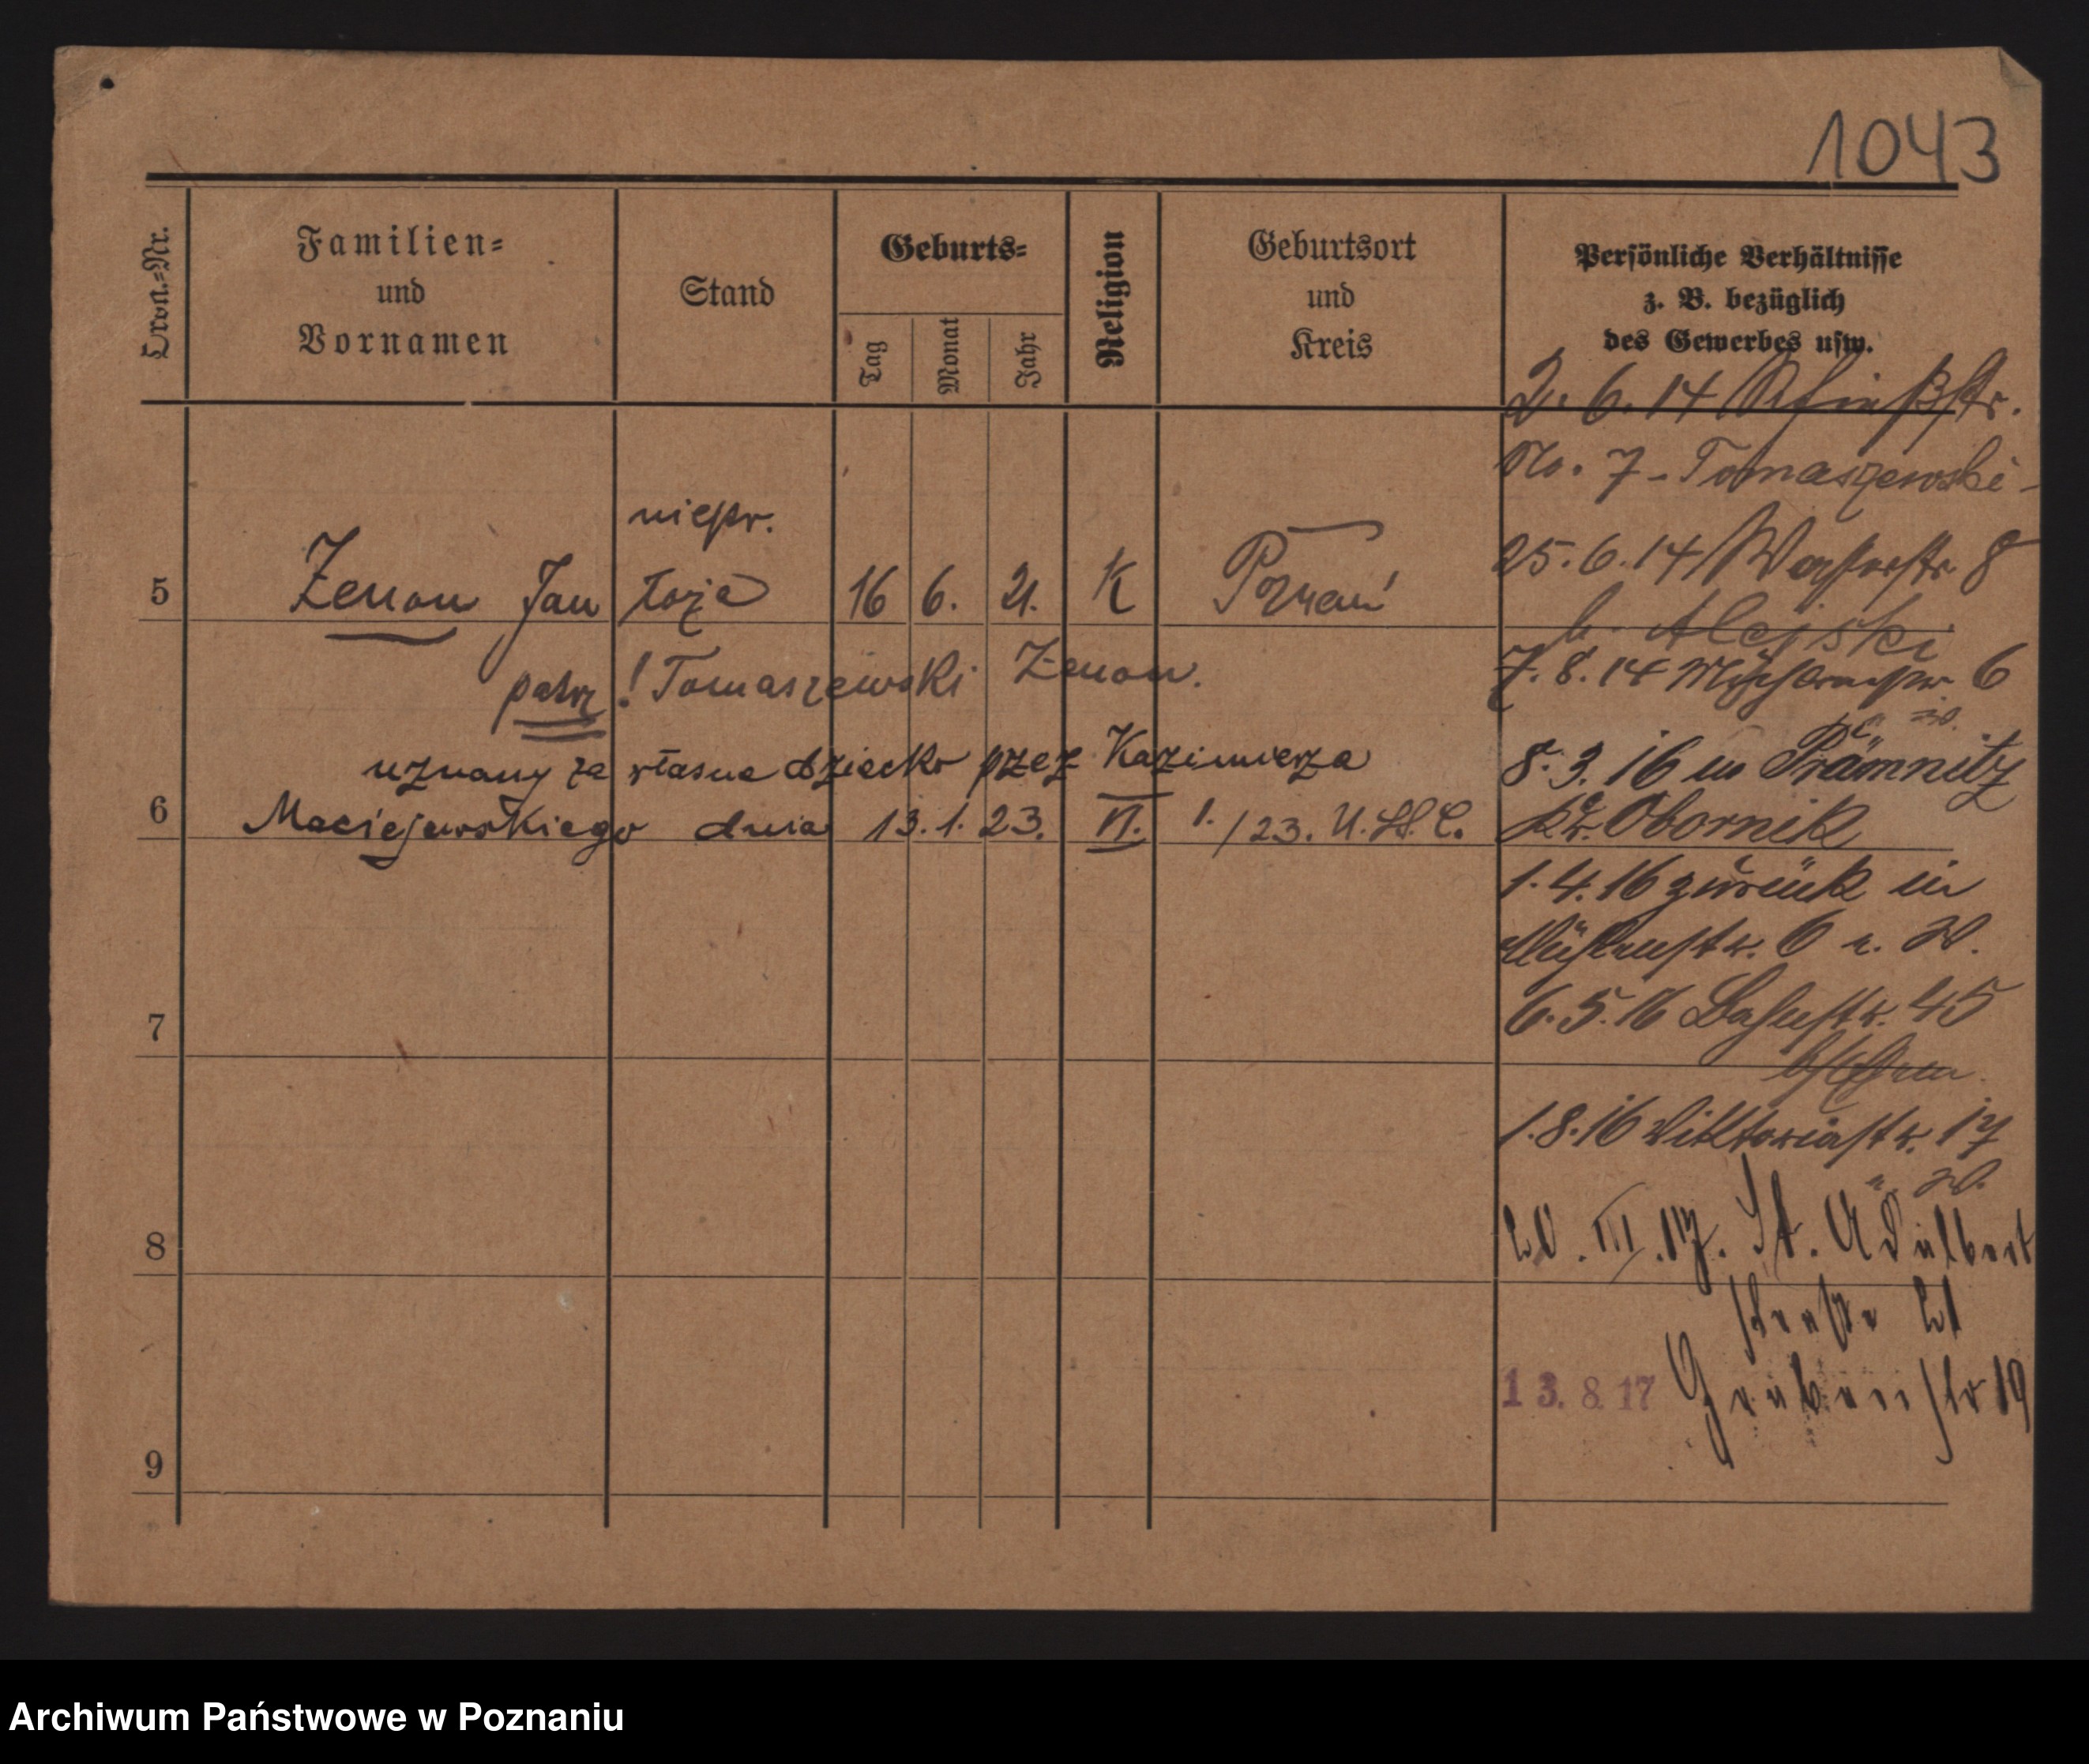 1043
Ordn.-Nr.
Familien-
und
Vornamen
Stand
Geburts-
Tag
Monat
Jahr
Religion
Geburtsort
und
Kreis
Persönliche Verhältnisse
z. B. bezüglich
des Gewerbes usw.
niepr.
5 Zenon Jan 16 6. 21. K Poznań
patrz! Tomaszewski Zenon.
uznany za własne dziecko przez Kazimierza
6 Maciejewskiego dnia 13. 1. 23. VI. 1./23. U. St. C.
7
8
9
2. 6. 14
No. 7 - Tomaszewski -
25. 6. 14 8
b. Alejski
7. 8. 14 6
8. 3. 16 in Prämnitz
Kr. Obornik
1. 4. 16 zurück in
Mühlenstr. 6
6. 5. 16 45
1. 8. 16 Viktoriastr. 17
20. III. 17. St. Adalbert
straße 21
13. 8. 17 Grabenstr 19
Archiwum Państwowe w Poznaniu